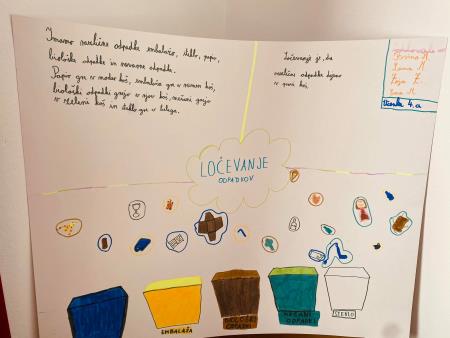 Imamo različne odpadke embalažo, steklo, papir,
biološke odpadke in nevarne odpadke.
Papir gre v moder koš, embalaža gre v rumen koš,
biološki odpadki grejo v rjav koš, mešani grejo
v zeleni koš in steklo gre v belega.
Ločevanje je, da
različne odpadke damo
v pravi koš.
Usnik 4.a
LOČEVANJE
ODPADKOV
EMBALAŽA
BIOLOŠKI
ODPADKI
MEŠANI
ODPADKI
STEKLO